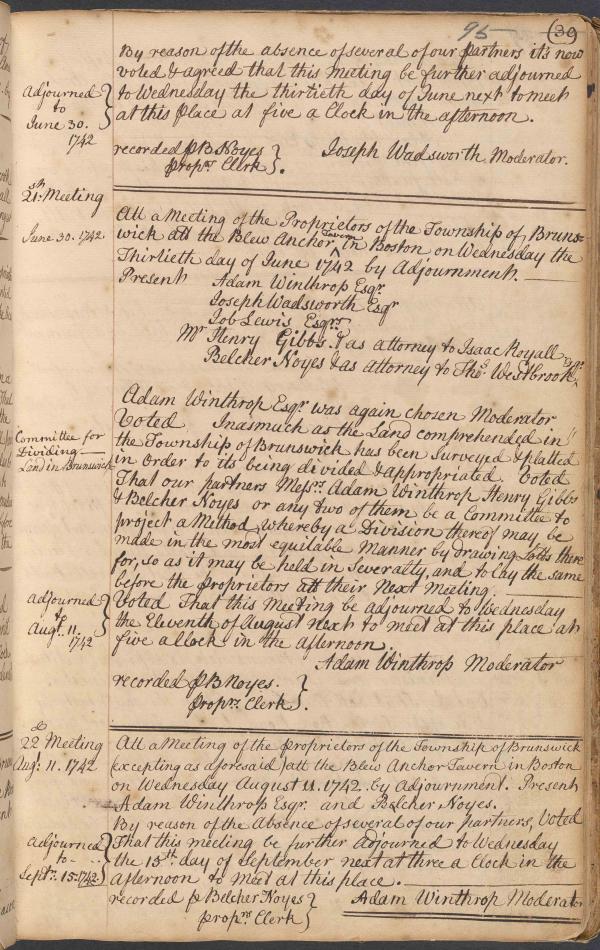 95 (39)
By reason of the absence of several of our partners it's now
voted & agreed that this meeting be further adjourned
to Wednesday the thirtieth day of June next to meet
at this place at five a Clock in the afternoon.
Adjourned
to
June 30.
1742
recorded p B Noyes
Propr. Clerk
Joseph Wadsworth Moderator.
21st Meeting
June 30. 1742.
Att a Meeting of the Proprietors of the Township of Bruns=
wick att the Blew Anchor Tavern in Boston on Wednesday the
Thirtieth day of June 1742 by Adjournment.
Present Adam Winthrop Esqr.
Joseph Wadsworth Esqr
Job Lewis Esqr.
Mr Henry Gibbs. & as attorney to Isaac Royall Esqr
Belcher Noyes & as attorney to Thos. Westbrook
Adam Winthrop Esqr was again chosen Moderator
Committee for
Dividing
Land in Brunswick
Voted Inasmuch as the Land comprehended in
the Township of Brunswick has been Surveyed & platted
in order to its being divided & appropriated. Voted
That our partners Messrs Adam Winthrop Henry Gibbs
& Belcher Noyes or any two of them be a Committee to
project a Method whereby a Division thereof may be
made in the most equitable Manner by drawing Lotts there
for, so as it may be held in Severalty, and to lay the same
before the Proprietors att their Next Meeting.
Adjourned
to
Augt. 11.
1742
Voted That this Meeting be adjourned to Wednesday
the Eleventh of August Next to meet at this place at
five a Clock in the afternoon.
Adam Winthrop Moderator
recorded p B Noyes.
Propr. Clerk
22 d Meeting
Augt. 11. 1742
Att a Meeting of the proprietors of the Township of Brunswick
(excepting as aforesaid) att the Blew Anchor Tavern in Boston
on Wednesday August 11. 1742. by Adjournment. Present
Adam Winthrop Esqr. and Belcher Noyes.
By reason of the Absence of several of our partners, Voted
Adjourned
to
Septr. 15. 1742
That this meeting be further Adjourned to Wednesday
the 15th day of September next at three a Clock in the
afternoon to meet at this place.
recorded p Belcher Noyes
proprs Clerk
Adam Winthrop Moderator